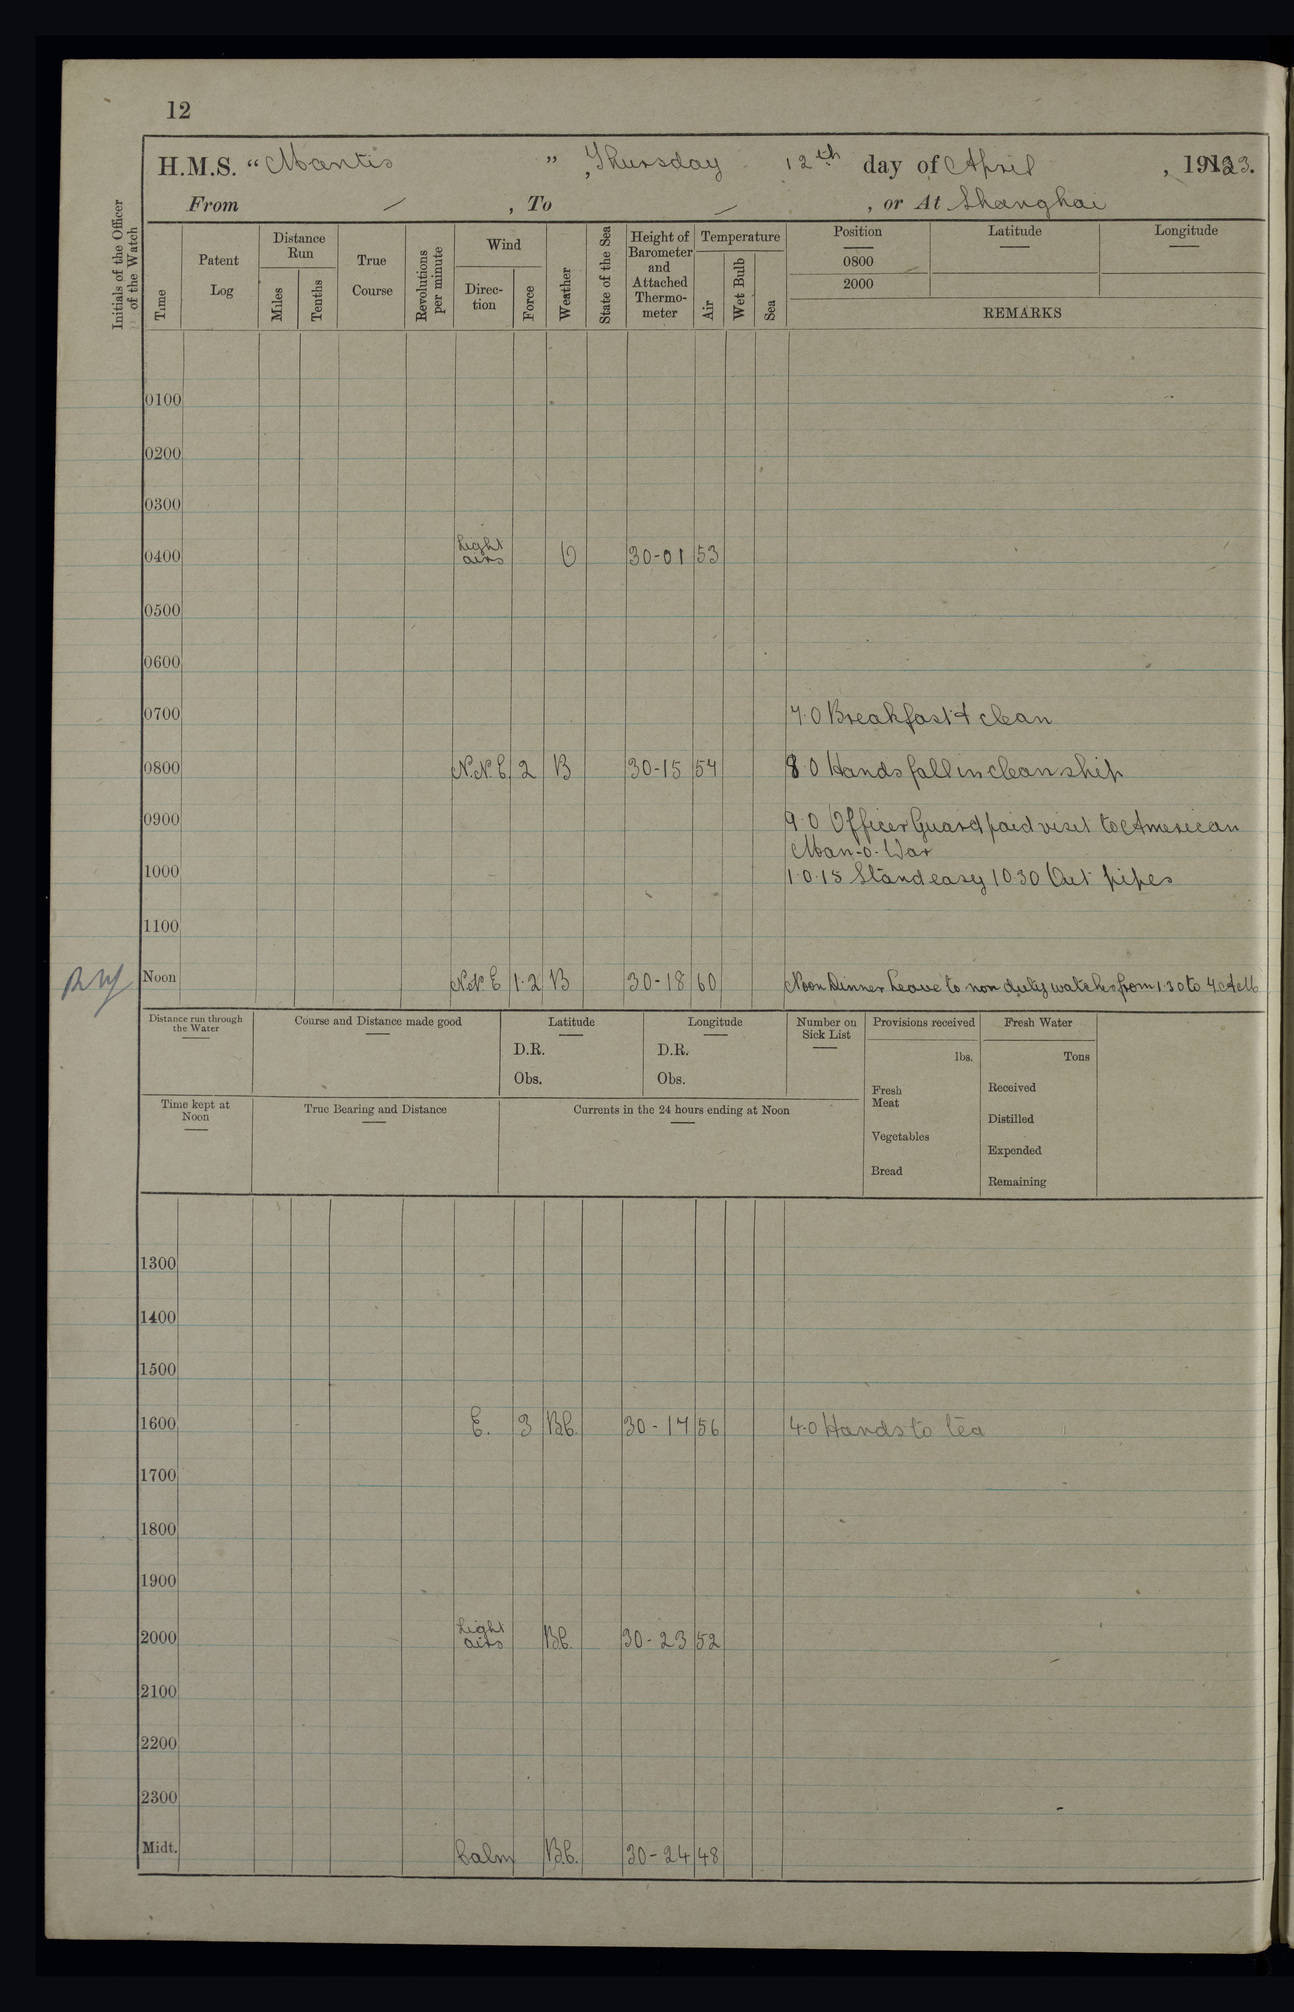 12
H.M.S. “Mantis”, Thursday 12th day of April, 1923.
From — , To — , or At Shanghai
Initials of the Officer of the Watch
Time
Patent Log
Distance Run
Miles
Tenths
True Course
Revolutions per minute
Wind
Direction
Force
Weather
State of the Sea
Height of Barometer and Attached Thermometer
Temperature
Air
Wet Bulb
Sea
Position
0800
2000
Latitude
Longitude
REMARKS
0100
0200
0300
0400 Light airs O 30-01 53
0500
0600
0700 7.0 Breakfast & clean
0800 N.N.E 2 B 30-15 54 8.0 Hands fall in clean ship
0900 9.0 Officer Guard paid visit to American
Man-o-War
1000 10.15 Stand easy 10.30 Out pipes
1100
Noon N.N.E 1.2 B 30-18 60 Noon Dinner Leave to non duty watches from 1.30 to 7.AM
Distance run through the Water
Course and Distance made good
Latitude
D.R.
Obs.
Longitude
D.R.
Obs.
Number on Sick List
Provisions received
lbs.
Fresh Meat
Vegetables
Bread
Fresh Water
Tons
Received
Distilled
Expended
Remaining
Time kept at Noon
True Bearing and Distance
Currents in the 24 hours ending at Noon
1300
1400
1500
1600 E. 3 Bb. 30-17 56 4.0 Hands to tea
1700
1800
1900
2000 Light airs Bb. 30-23 52
2100
2200
2300
Midt. Calm B.b. 30-24 48